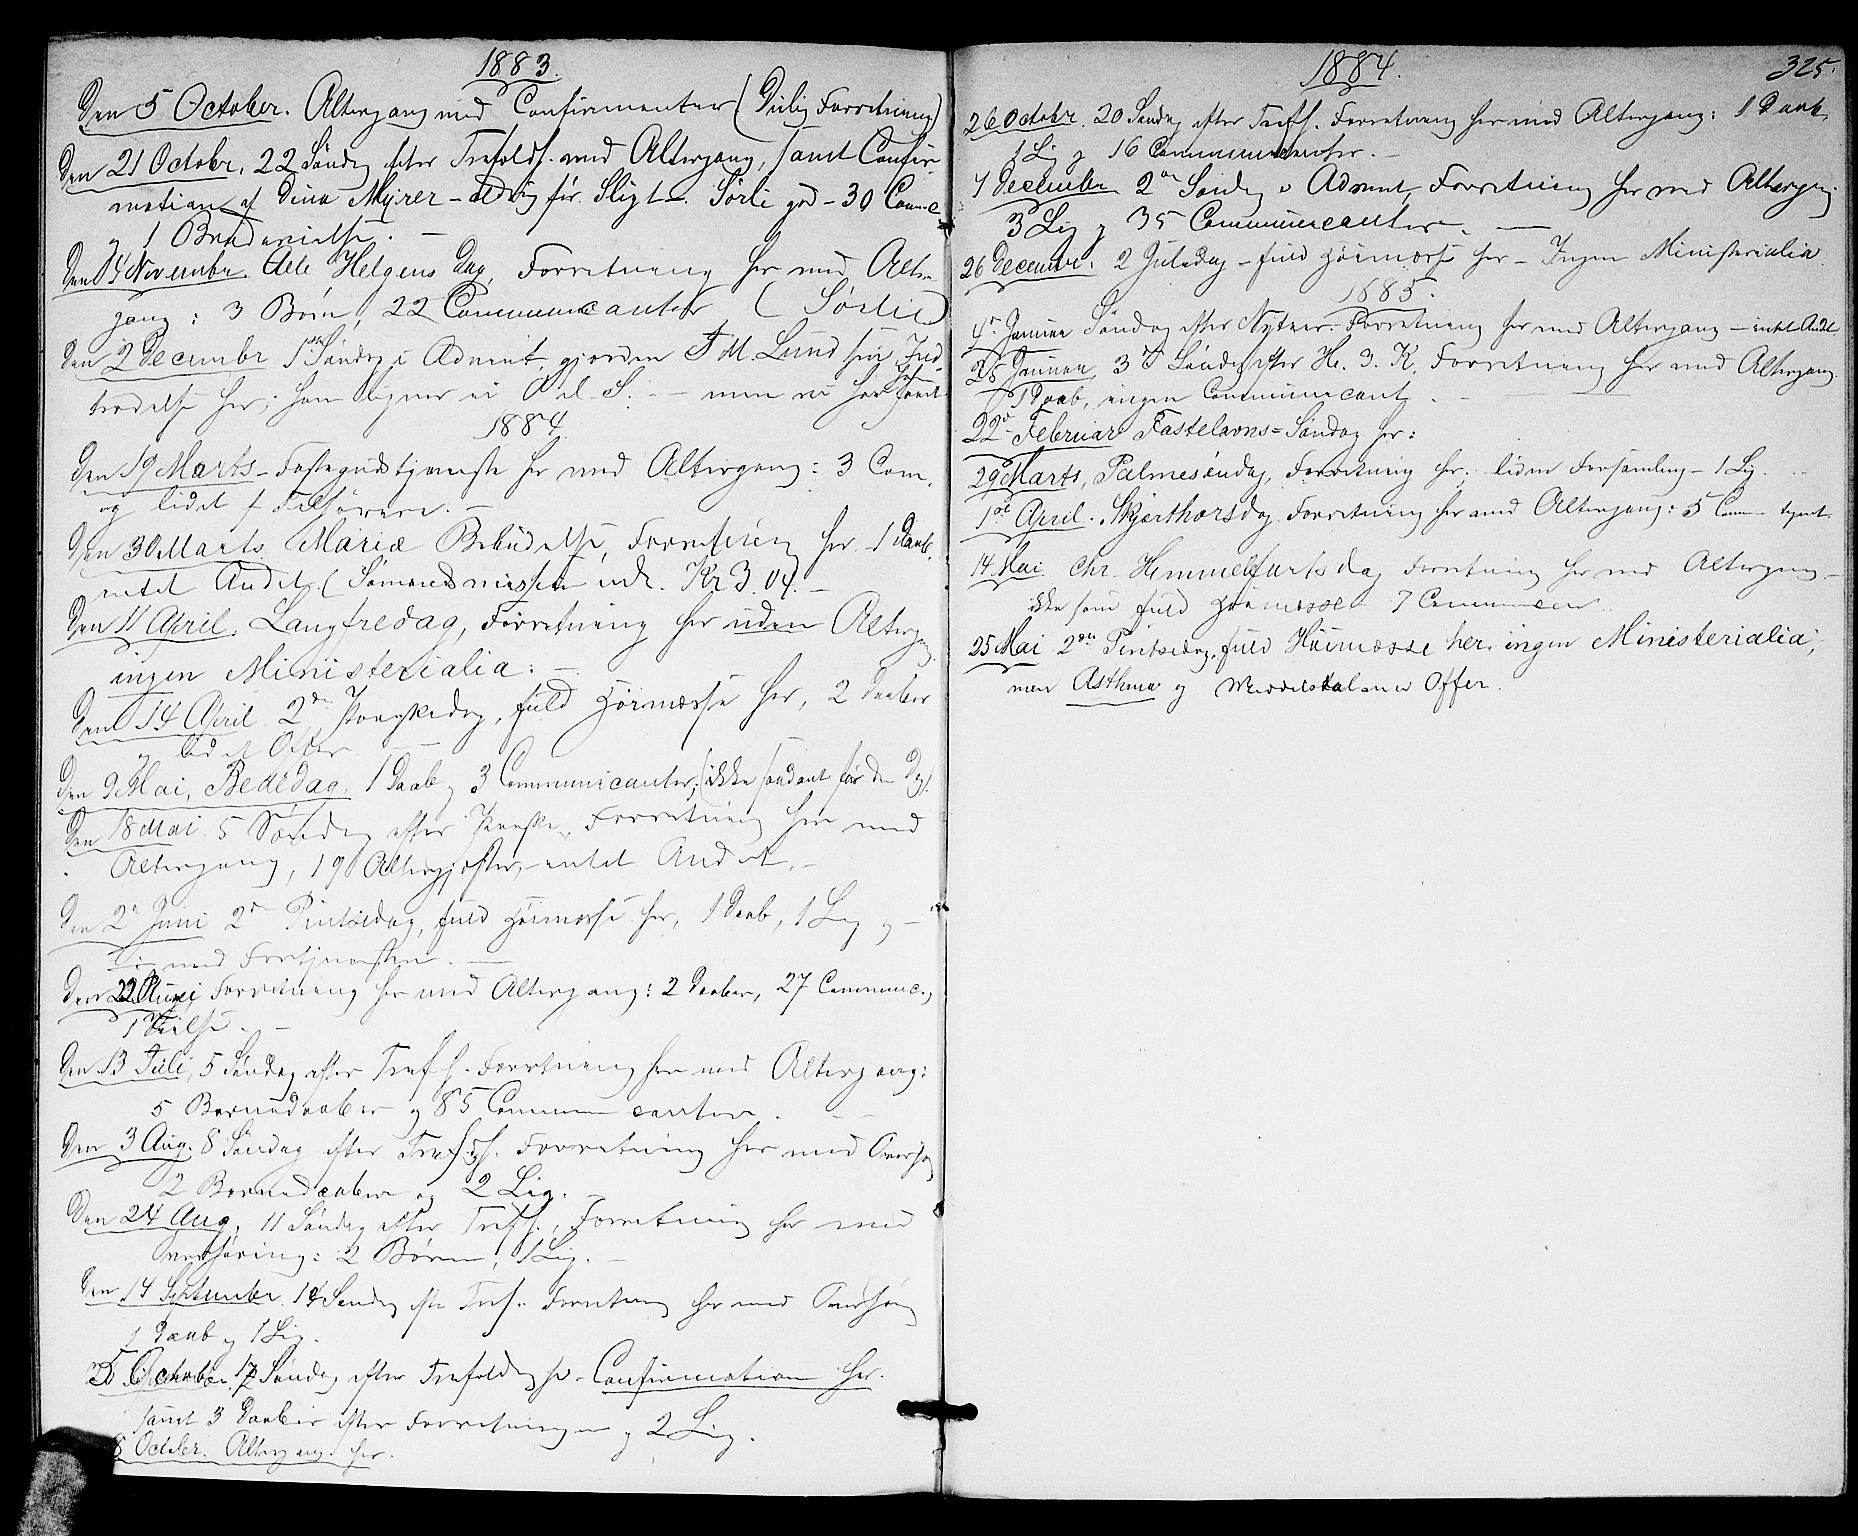 1883.
Den 5 October. Altergang med Confirmenter (Deilig Forretning)
Den 21 Octobr. 22 Søndag efter Trefoldh. med Altergang, samt Confir-
mation af Dina Myrer - aldrig før. Sligt - Sørli god - 30 Comc
og 1 Brudevielse. -
Den 4 November Alle Helgens Dag, Forretning her med Alter-
gang: 3 Børn, 22 Communicanter (Sørlie)
Den 2 Decembr 1ste Søndag i Advent, gjorden J M. Lund sin Ind-
trædelse her; han ligner ei - men
1884
Den 19 Marts - Fastegudstjeneste her med Altergang: 3 Com.
og lidet af Tilhørere. -
Den 30 Marts. Mariæ Bebudelse, Forretning her - 1 Daab.
intet Andet. (Sømandsmissen indk. Kr 3.04. -
Den 11 April. Langfredag, Forretning her uden Alterg.
ingen Ministerialia: -
Den 14 April. 2den Paaskedag, fuld Høimesse her, 2 Daaber
og lidet Offer
Den 9 Mai, Bededag. 1 Daab og 3 Communicanter; (ikke saadant før den Dag).
Den 18 Mai. 5 Søndag efter Paaske, Forretning her med
Altergang, 19 Altergjester, - intet Andet. -
Den 2n Juni 2den Pintsedag, fuld Høimesse her, 1 Daab, 1 Lig og -
med Fortjenesten. -
Den 22 Juni, Forretning her med Altergang: 2 Daaber, 27 Communic.,
1 Vielse. -
Den 13 Juli, 5 Søndag efter Trefh. Forretning her med Altergang:
5 Barnedaaber og 85 Communicanter. -
Den 3 Aug. 8 Søndag efter Trefh. Forretning her med Overhør.
2 Barnedaaber og 2 Lig. -
Den 24 Aug. 11 Søndag efter Trefh., Forretning her med
Overhøring: 2 Børn, 1 Lig. -
Den 14 September. 14 Søndag efter Tref. Forretning her med Overhør.
1 Daab og 1 Lig.
5 October 17 Søndag efter Trefoldigh. - Confirmation her.
samt 3 Daaber efter Forretningen og 2 Lig.
8 Octobr. Altergang her.
1884.
325.
26 Octobr. 20 Søndag efter Trefh. Forretning her med Altergang: 1 Daab,
1 Lig og 16 Communicanter. -
7 December 2den Søndag i Advent, Forretning her med Altergang.
3 Lig og 35 Communicanter. -
26 December. 2 Juledag - fuld Høimesse her - Ingen Ministerialia
1885.
4de Januar Søndag efter Nytaar. Forretning her med Altergang - intet Andet.
25 Januar 3de Søndag efter He. 3. K. Forretning her med Altergang.
1 Daab, ingen Communicant. -
22de Februar Fastelavns-Søndag her:
29 Marts, Palmesøndag, Forretning her, liden Forsamling - 1 Lig
1ste April. Skjærthorsdag. Forretning her med Altergang: 5 Com -
14 Mai Chr. Himmelfartsdag Forretning her med Altergang -
ikke som fuld Høimesse 7 Communican
25 Mai 2den Pintsedag. fuld Høimesse her. ingen Ministerialia,
men Asthma og Offer.